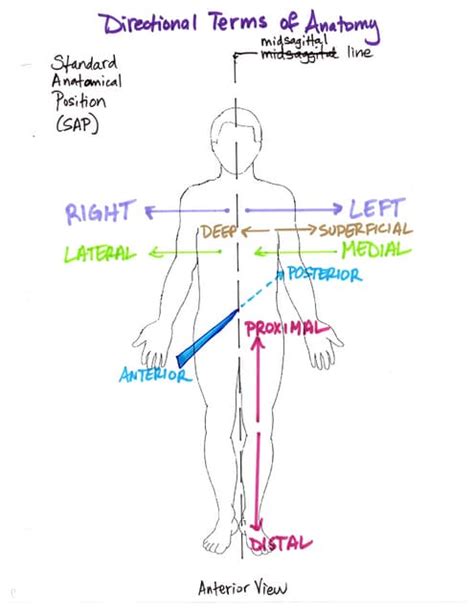 Directional Terms of Anatomy
midsagittal
midsaggital line
Standard
Anatomical
Position
(SAP)
RIGHT LEFT
DEEP SUPERFICIAL
LATERAL MEDIAL
POSTERIOR
PROXIMAL
ANTERIOR
DISTAL
Anterior View